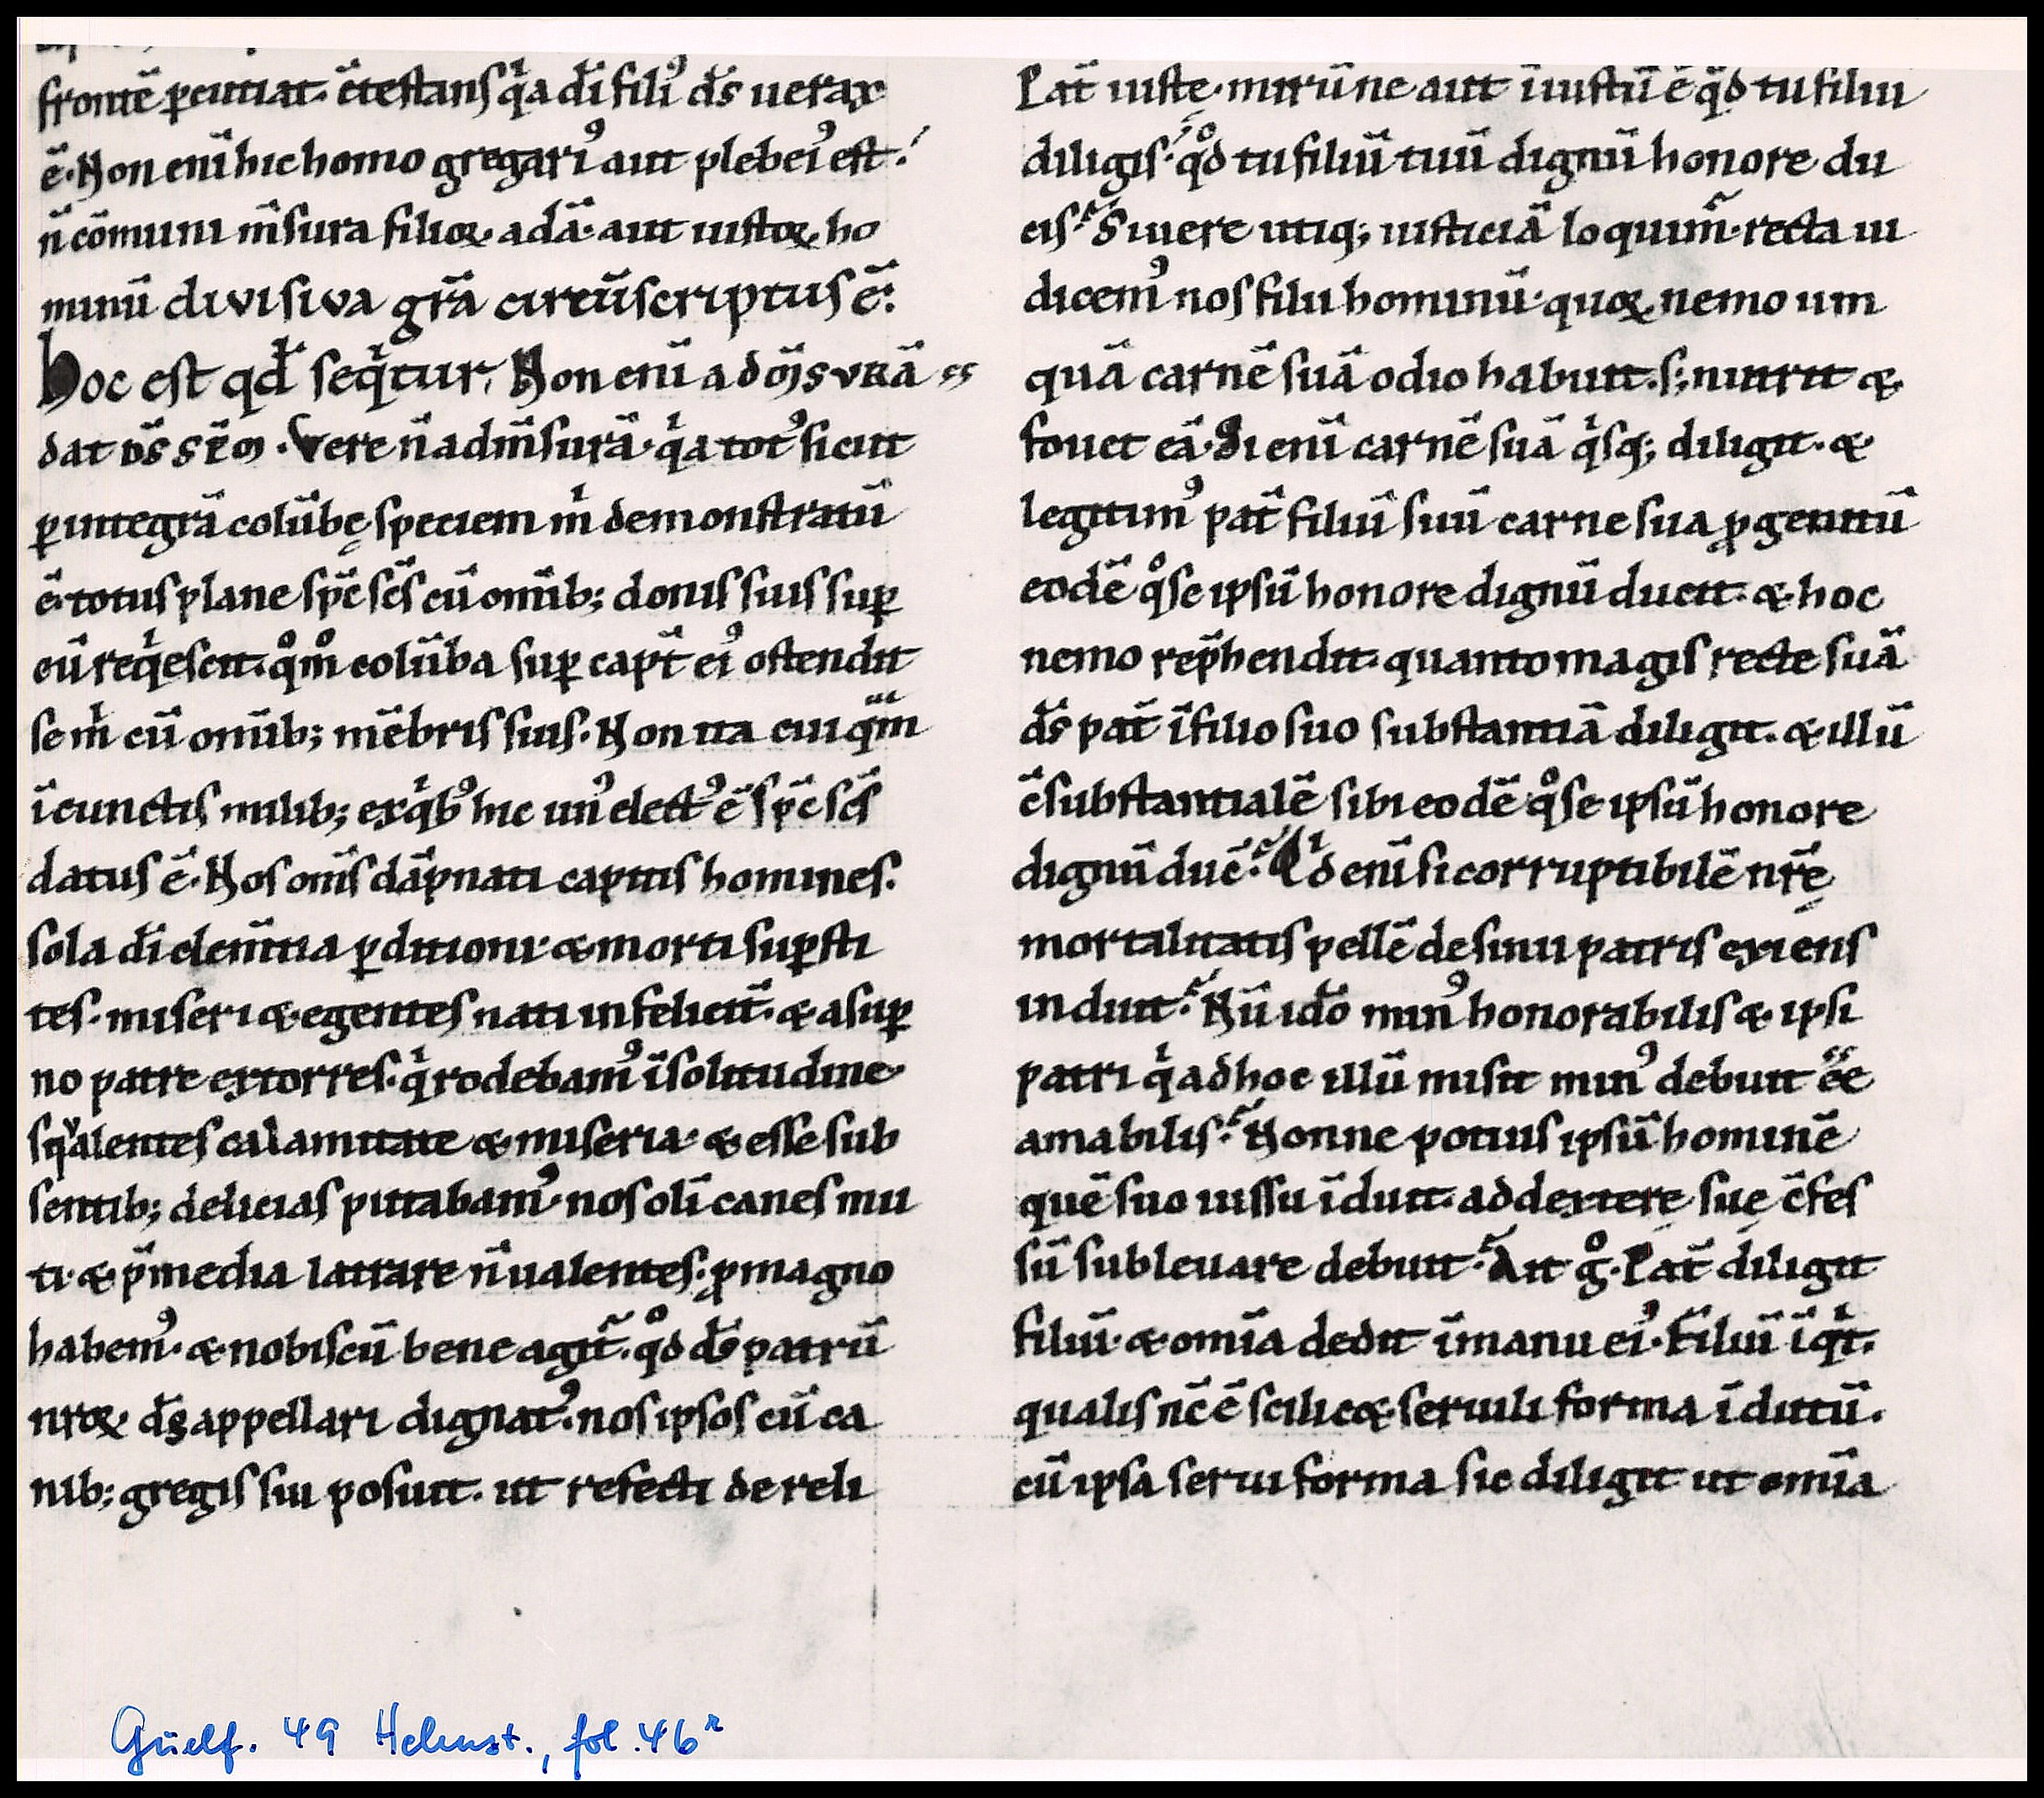 frontē ꝑcutiat. c̄testans qͥa dī filiꝰ d̄s uerax
ē. Non eni̅ hic homo gregariꝰ aut plebeiꝰ est.
n̄ cōmuni m̄sura filioꝝ adā. aut iustoꝝ ho
minū divisiva gr̄a circūscriptus ē.
Hoc est qd̄ seqͥtur. Non eni̅ ad m̄suRā
dat d̄s sp̄m. Vere n̄ ad m̄surā. qͥa totꝰ sicut
ꝑ integrā colūbę speciem mͥ demonstratū
ē. totus plane sp̄c sc̄s cū omīb; donis suis suꝑ
eū reqͥescit. qͦm̄ colūba suꝑ capt̄ eiꝰ ostendit
se mͥ cū omīb; mēbris suis. Non ita cuiqͣm
ī cunctis milib; ex qͥbꝰ hic unꝰ electꝰ ē sp̄c sc̄s
datus ē. Nos om̄s dāpnati captiuis homines.
sola dī clem̄tia ꝑditioni. & morti suꝑsti
tes. miseri & egentes nati infelicit̄. & a suꝑ
no patre extorres. qͥ rodebamꝰ ī solitudine
sqͣlentes calamitate & miseria. & esse sub
sentib; delicias putabamꝰ. nos olī canes mu
ti. & p̄ media latrare n̄ ualentes. ꝓ magno
habemꝰ. & nobiscū bene agit̄. qͦd de patrū
nr̄oꝝ d̄s appellari dignatꝰ. nos ipsos cū ca
nib; gregis sui posuit. ut refecti de reli
Pat̄ iuste. mirū ne aut īiustū ē qͦd tu filiū
diligis. qͦd tu filiū tuū dignū honore du
cis. Si uere utiq; iusticiā loquim̄. recta iu
dicemꝰ nos filii hominū. quoꝝ nemo um
quā carnē suā odio habuit. s; nutrit &
fouet eā. Si eni̅ carnē suā qͥsq; diligit. &
legitimꝰ pat̄ filiū suū carne sua ꝓgenitū
eodē qͦ se ipsū honore dignū ducit. & hoc
nemo rep̄hendit. quanto magis recte suā
d̄s pat̄ ī filio suo substantiā diligit. & illū
c̄substantialē sibi eodē qͦ se ipsū honore
dignū duc̄. Qͥd eni̅ si corruptibilē nr̄ę
mortalitatis pellē de sinu patris exiens
induit. Nū idō minꝰ honorabilis & ipsi
patri qͥ ad hoc illū misit minꝰ debuit ēē
amabilis. Nonne potius ipsū hominē
quē suo iussu īduit. ad dexterę suę c̄ses
sū subleuare debuit. Ait gͦ. Pat̄ diligit
filiū. & omīa dedit ī manu eiꝰ. Filiū īqͥt.
qualis nc̄ ē scilic& seruili forma īdutū.
cū ipsa serui forma sic diligit ut omīa
Guelf. 49 Helmst., fol. 46ʳ